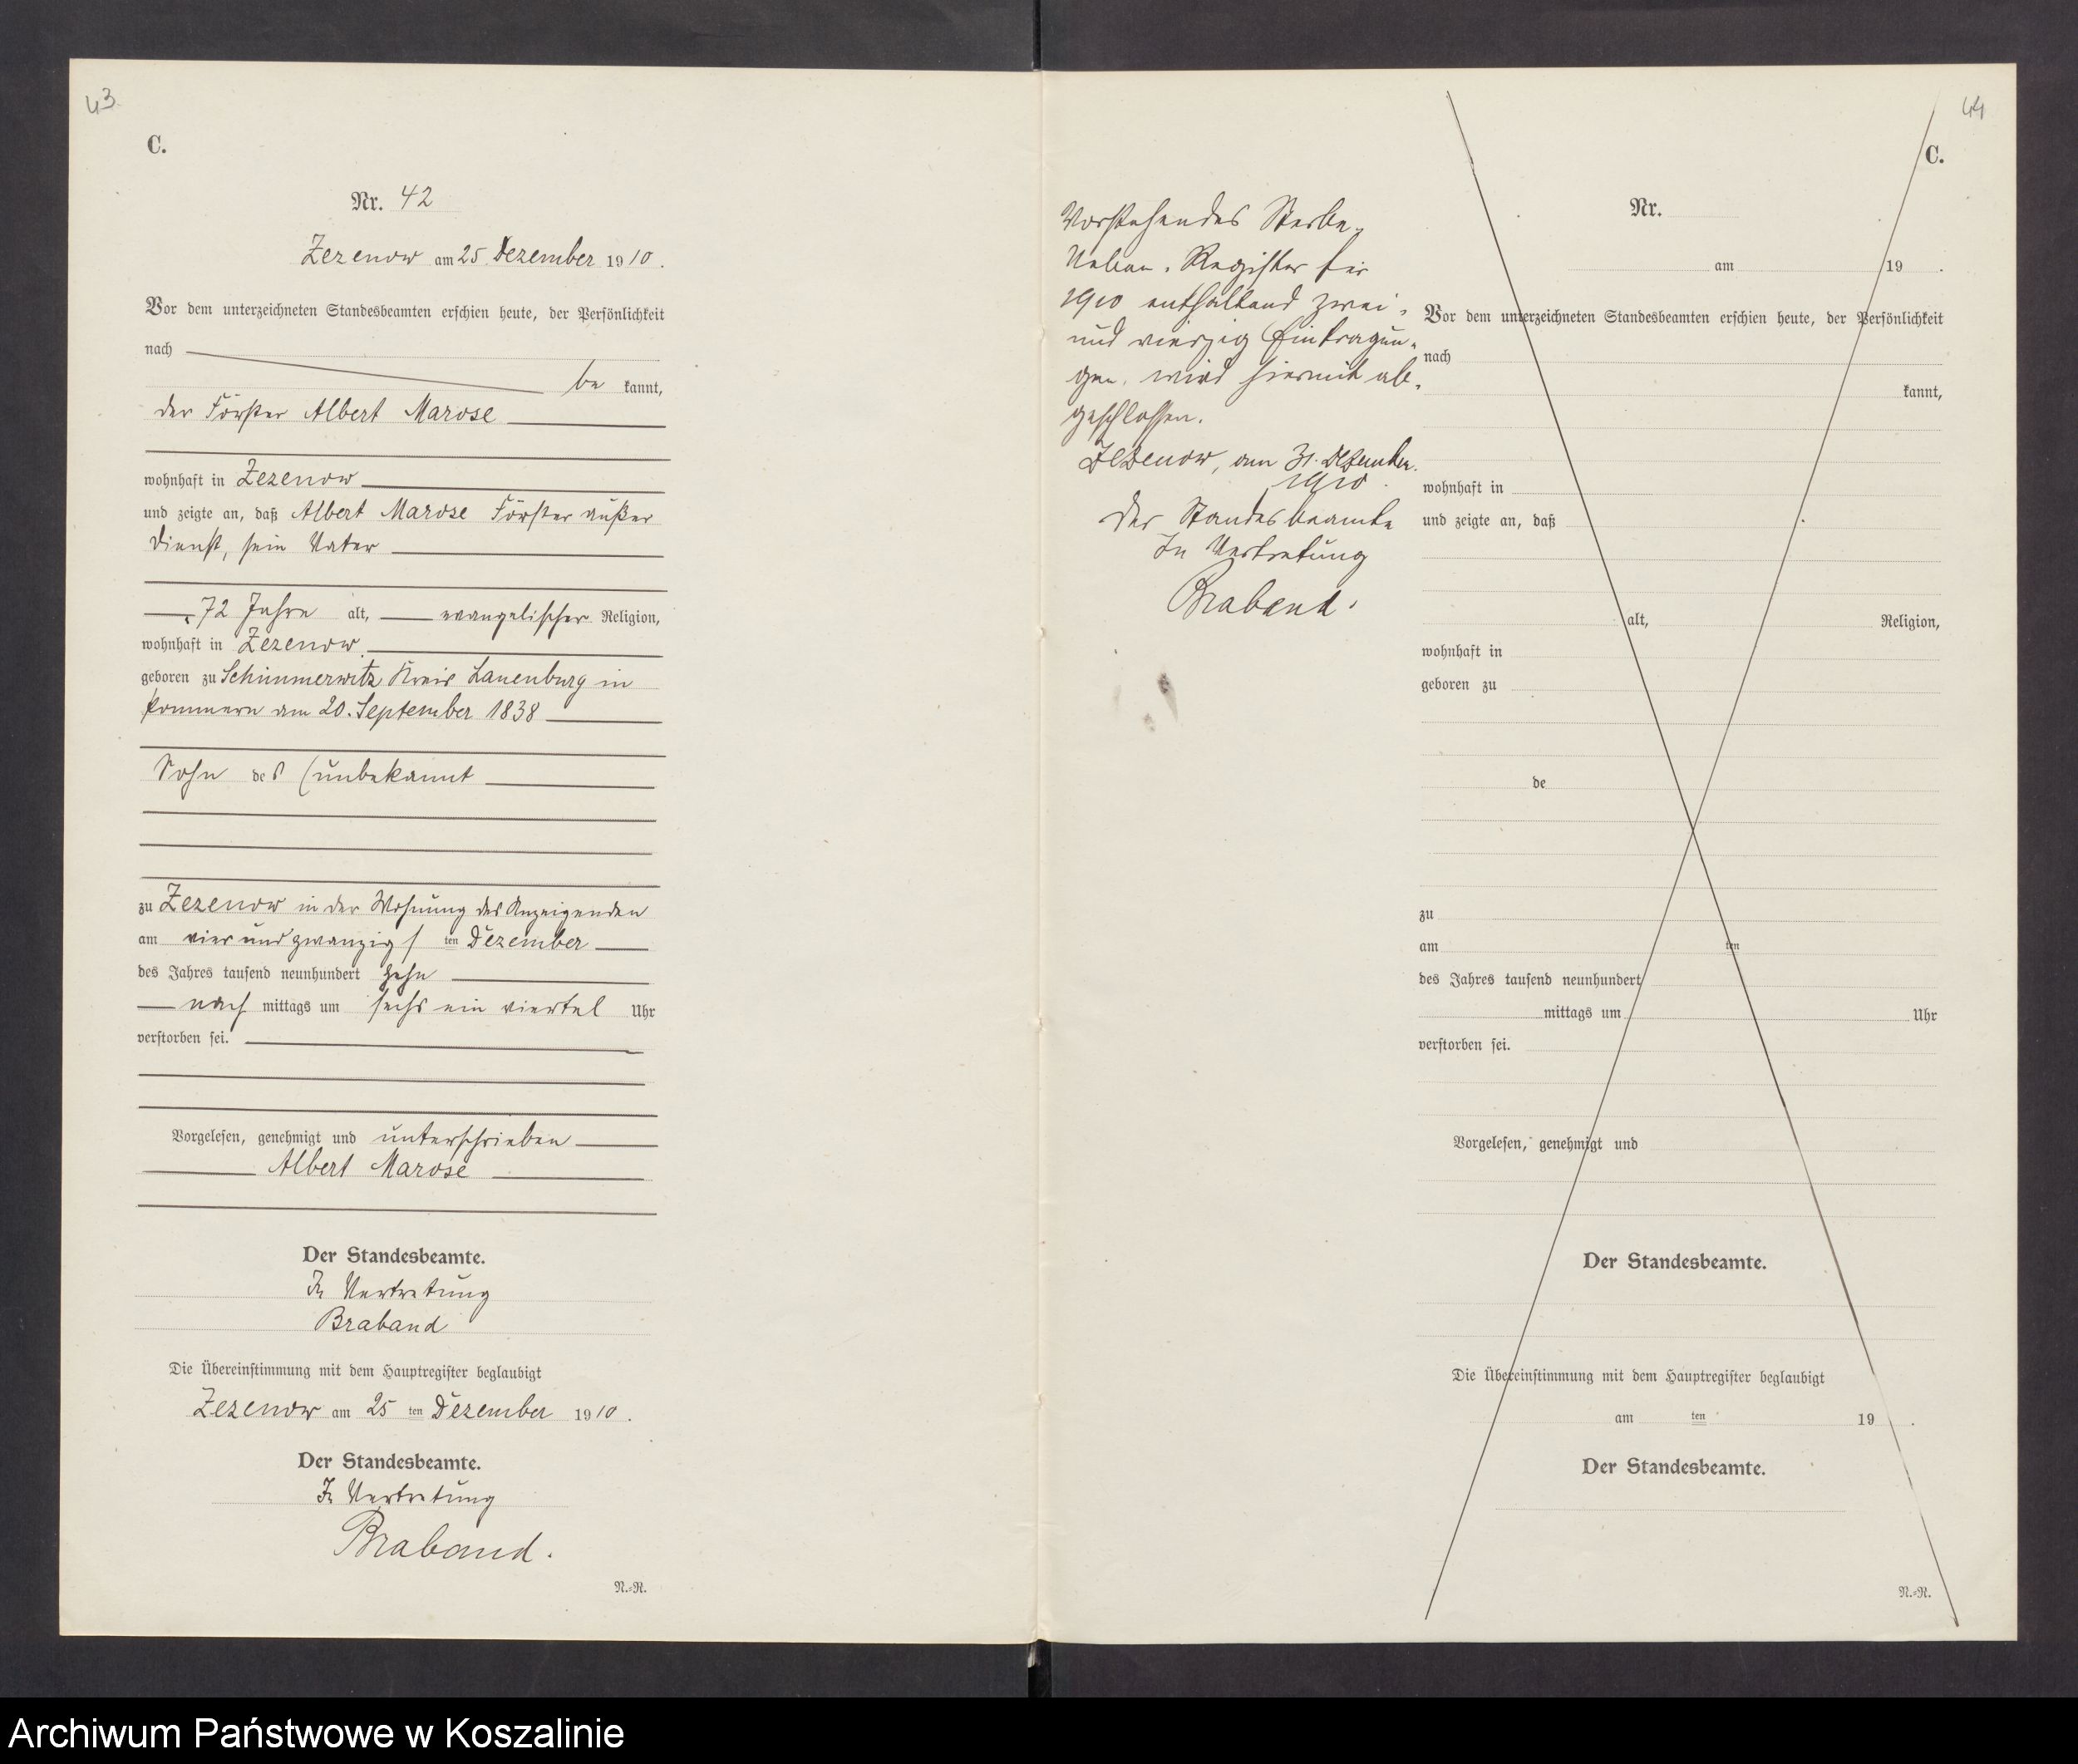 43
C.
Nr. 42
Zezenow am 25. Dezember 1910.
Vor dem unterzeichneten Standesbeamten erschien heute, der Persönlichkeit
nach
be kannt,
der Förster Albert Marose
wohnhaft in Zezenow
und zeigte an, daß Albert Marose Förster außer
Dienst, sein Vater
72 Jahre alt, evangelischer Religion,
wohnhaft in Zezenow
geboren zu Schimmerwitz Kreis Lauenburg in
Pommern am 20. September 1838
Sohn des (unbekannt
zu Zezenow in der Wohnung des Anzeigenden
am vier und zwanzig ten Dezember
des Jahres tausend neunhundert zehn
nach mittags um sechs ein viertel Uhr
verstorben sei.
Vorgelesen, genehmigt und unterschrieben
Albert Marose
Der Standesbeamte.
In Vertretung
Braband
Die Übereinstimmung mit dem Hauptregister beglaubigt
Zezenow am 25 ten Dezember 1910.
Der Standesbeamte.
In Vertretung
Braband.
N.=R.
44
C.
Vorstehendes Sterbe-
Neben-Register für
1910 enthaltend zwei-
und vierzig Eintragun-
gen, wird hiermit ab-
geschlossen.
Zezenow, am 31. Dezember
1910.
Der Standesbeamte
In Vertretung
Braband.
Nr.
am 19 .
Vor dem unterzeichneten Standesbeamten erschien heute, der Persönlichkeit
nach
kannt,
wohnhaft in
und zeigte an, daß
alt, Religion,
wohnhaft in
geboren zu
de
zu
am ten
des Jahres tausend neunhundert
mittags um Uhr
verstorben sei.
Vorgelesen, genehmigt und
Der Standesbeamte.
Die Übereinstimmung mit dem Hauptregister beglaubigt
am ten 19 .
Der Standesbeamte.
N.=R.
Archiwum Państwowe w Koszalinie